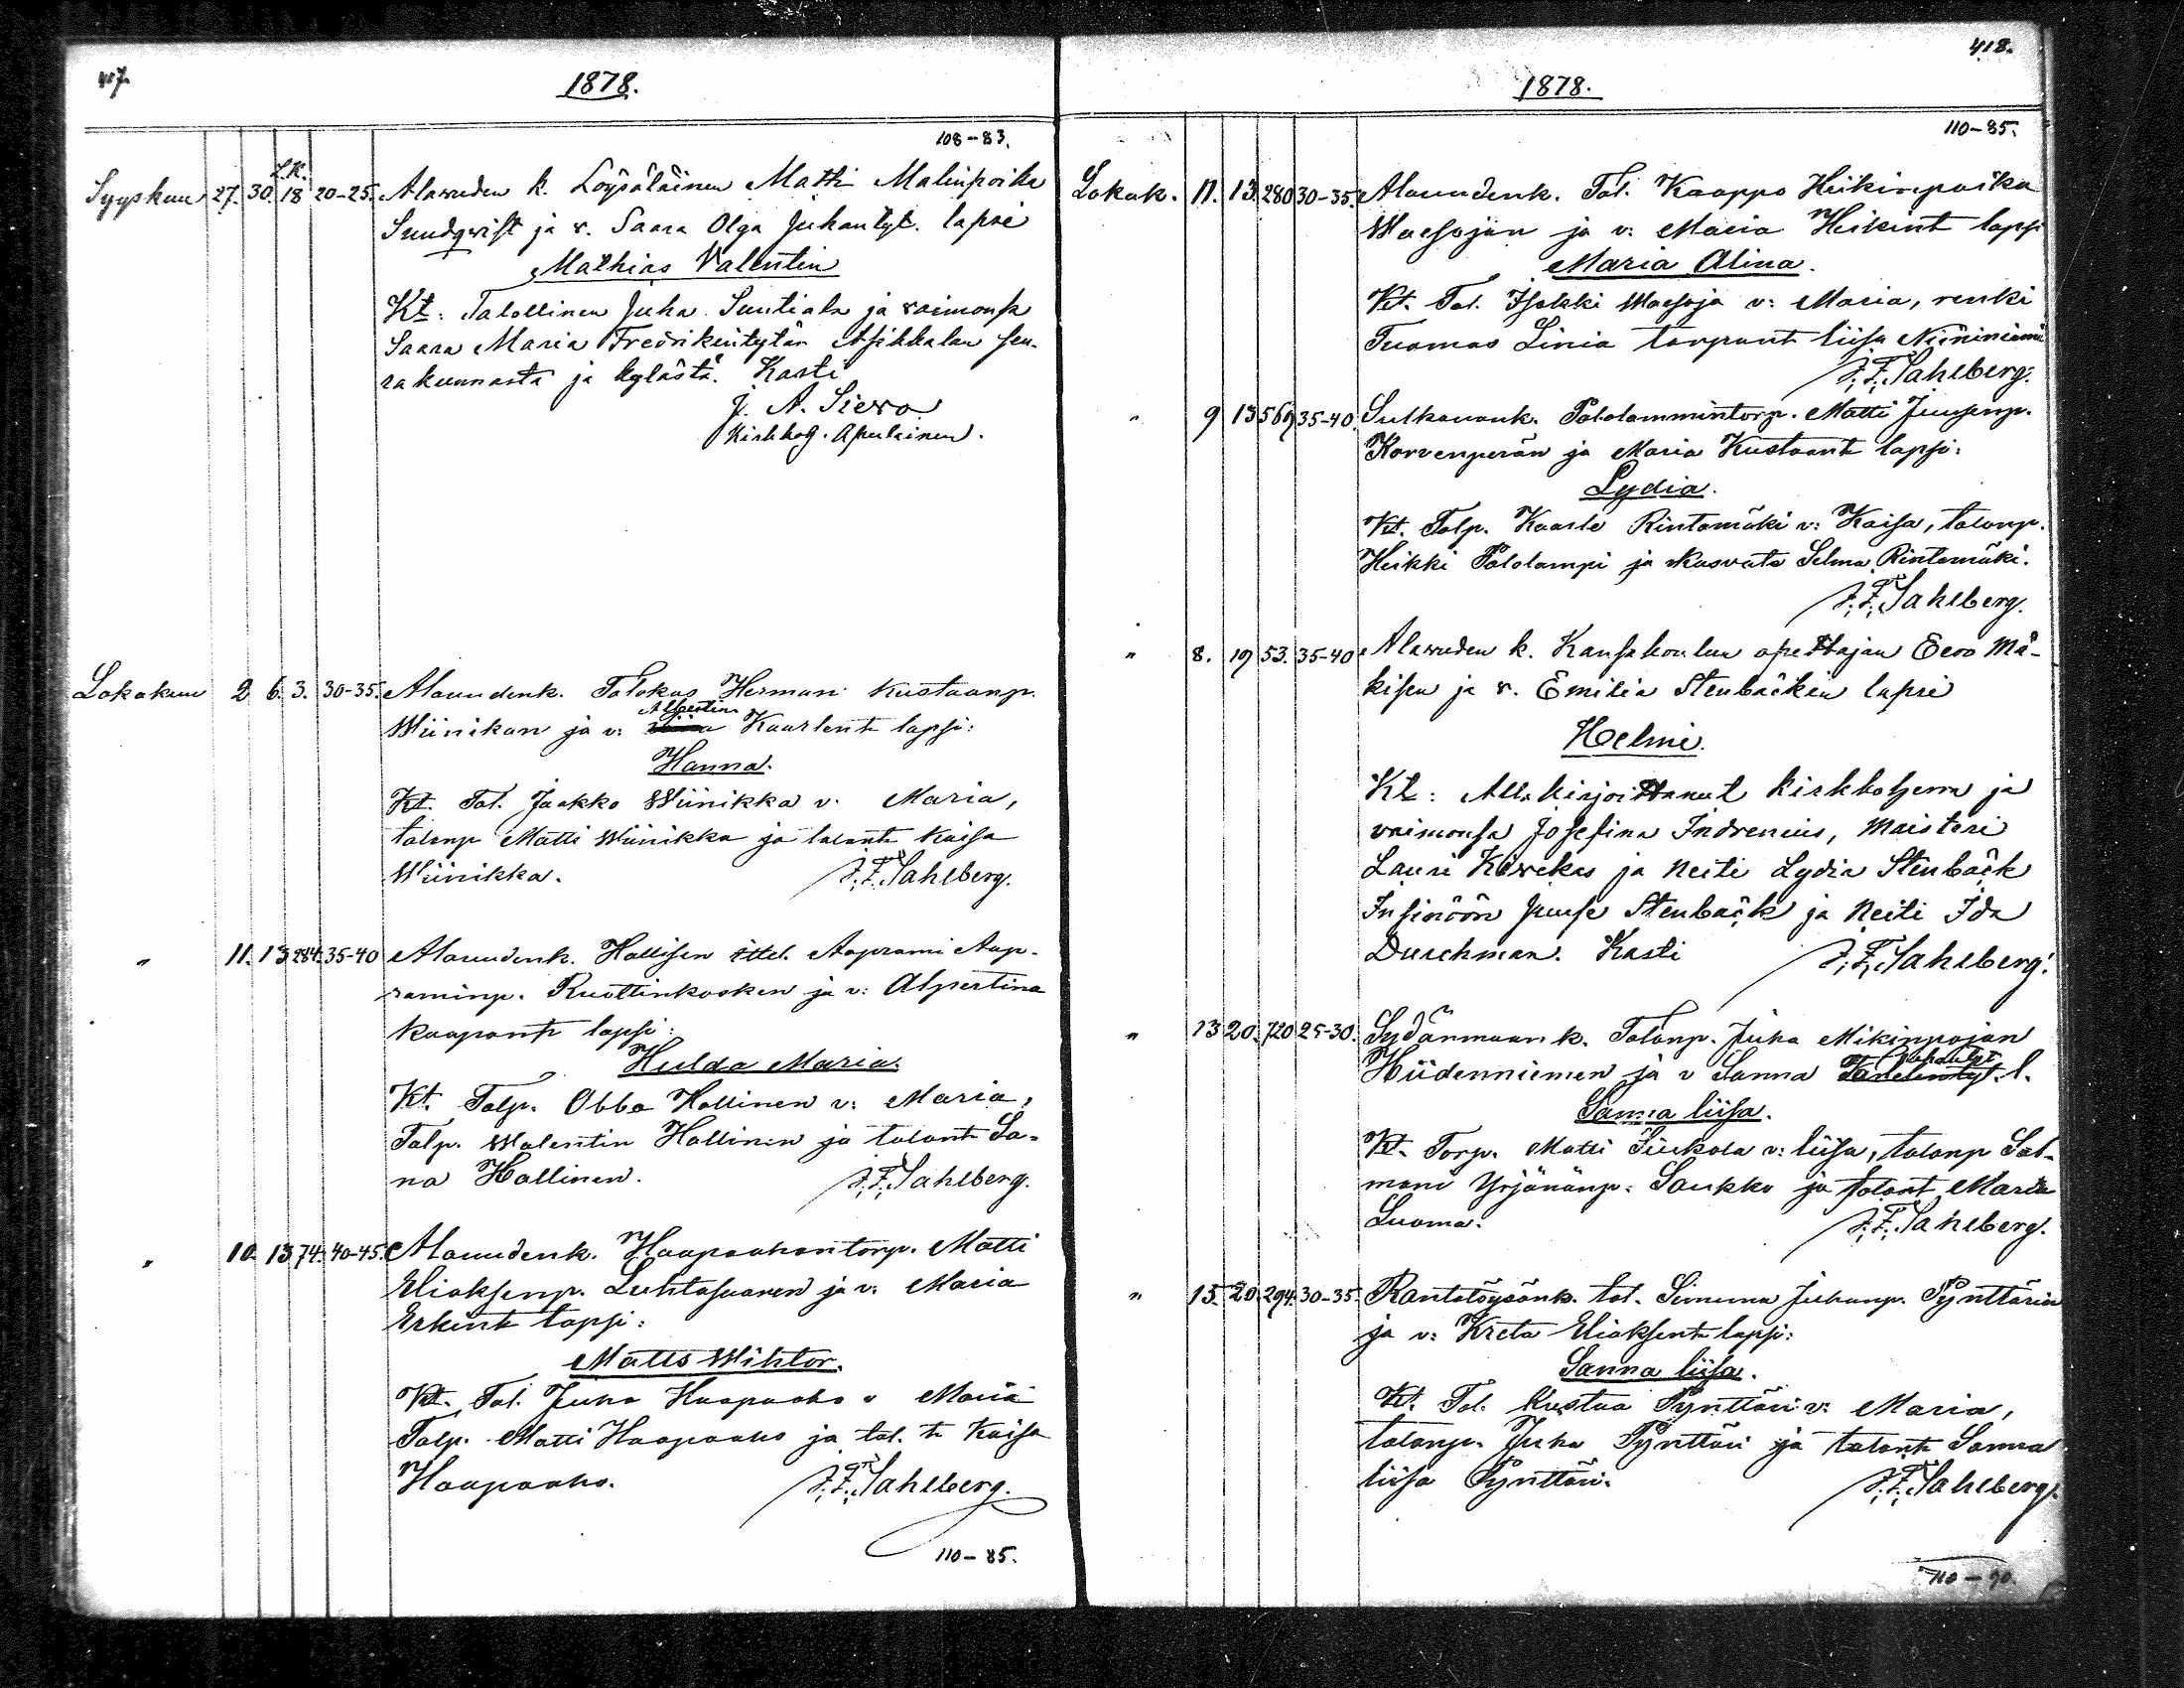 417.
1878.
108-83.
L.K.
Syyskuu 27. 30. 18 20-25. Alavuden k. Löysäläinen Matti Malinpoika
Sundqvist ja v. Saara Olga Juhantyt. lapsi
Mathias Valentin
Kt: Talollinen Juha Suutiala ja vaimonsa
Saara Maria Fredrikintytär Asikkalan seu-
rakunnasta ja kylästä. Kasti
J. A. Siewo
Kirkkoh. Apulainen.
Lokakuu 2 6. 3. 30-35. Alavudenk. Talokas Herman Kustaanp.
Albertin
Wiinikan ja v: Kaarlent lapsi:
Hanna.
Kt. Tal. Jaakko Wiinikka v: Maria,
talonp Matti Wiinikka ja talont Kaisa
Wiinikka. J. F. Sahlberg.
" 11. 13 284. 35-40 Alavudenk. Hallisen ittel. Aaprami Aap-
raminp. Ruottinkosken ja v: Alpertina
Kaapont lapsi:
Hulda Maria.
Kt. Talp. Obba Hallinen v: Maria,
Talp. Walentin Hallinen ja talont Sa-
na Hallinen. J. F. Sahlberg.
" 10. 13 74. 40-45. Alavudenk. Haapaahontorp. Matti
Eliaksenp. Luhtasaaren ja v. Maria
Erkint lapsi:
Matts Wihtor.
Kt. Tal. Juha Haapaaho v Maria
Talp. Matti Haapaaho ja tal. t. Kaisa
Haapaaho. J. F. Sahlberg.
110-85.
418.
1878.
110-85.
Lokak. 11. 13. 280 30-35. Alavudenk. Tal. Kaappo Heikinpoika
Waesojan ja v: Maria Heikint lapsi
Maria Alina.
Kt. Tal. Isakki Waesoja v: Maria, renki
Tuomas Linia torpant liisa Niininiemi
J. F. Sahlberg.
" 9 13 569 35-40. Sulkavank. Pololammintorp. Matti Juusenp.
Korvenperän ja Maria Kustaant lapsi:
Lydia.
Kt. Talp. Kaarle Rintamäki v: Kaisa, talonp.
Heikki Pololampi ja Kasvate Selma Rintamäki.
J. F. Sahlberg.
" 8. 19 53. 35-40 Alavuden k. Kansakoulun opettajan Eero Mä-
kisen ja v. Emilia Stenbäckin lapsi
Helmi.
Kt: Allakirjoittanut kirkkoherra ja
vaimonsa Josefina Indrenius, Maisteri
Lauri Kivekas ja Neiti Lydia Stenbäck
Insinööri Juuse Stenbäck ja Neiti Ida
Durchman. Kasti J. F. Sahlberg.
" 13 20. 720 25-30. Sydänmaan k. Talonp. Juha Mikinpojan
Hiidenniemen ja v Sanna l.
Sanna liisa.
Kt. Torp. Matti Siirkola v: liisa, talonp Sal-
moni Yrjänänp: Saukko ja talont Maria
Luoma. J. F. Sahlberg.
" 15. 20. 294. 30-35. Rantatöysänk. tal. Simuna Juhanp. Pynttärin
ja v: Kreta Eliaksent lapsi:
Sanna liisa.
Kt. Tal. Kustaa Pynttäri v: Maria,
talonp. Juha Pynttäri ja talont Sanna
liisa Pynttäri. J. F. Sahlberg.
110-90.